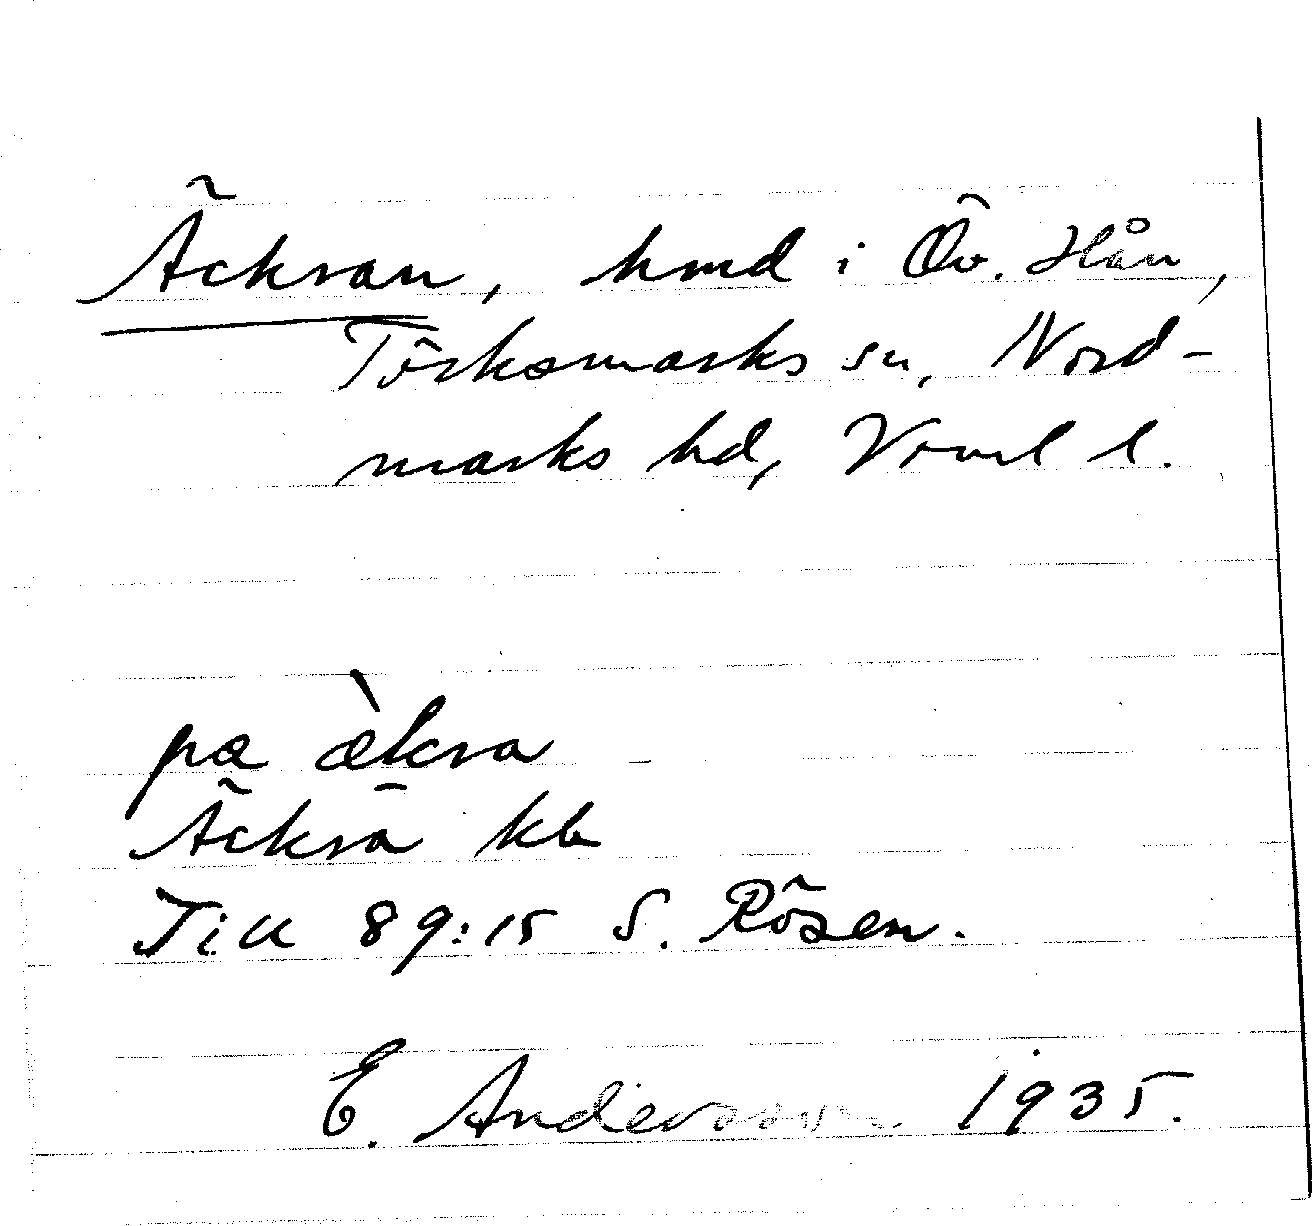 Äckran, hmd i Öv. Hån,
Törksmarks sn, Nord-
marks hd, Värml l.
pæ æ̀kra
Äckrä kb
Till 89:15 S. Rösen.
E. Andersson 1935.